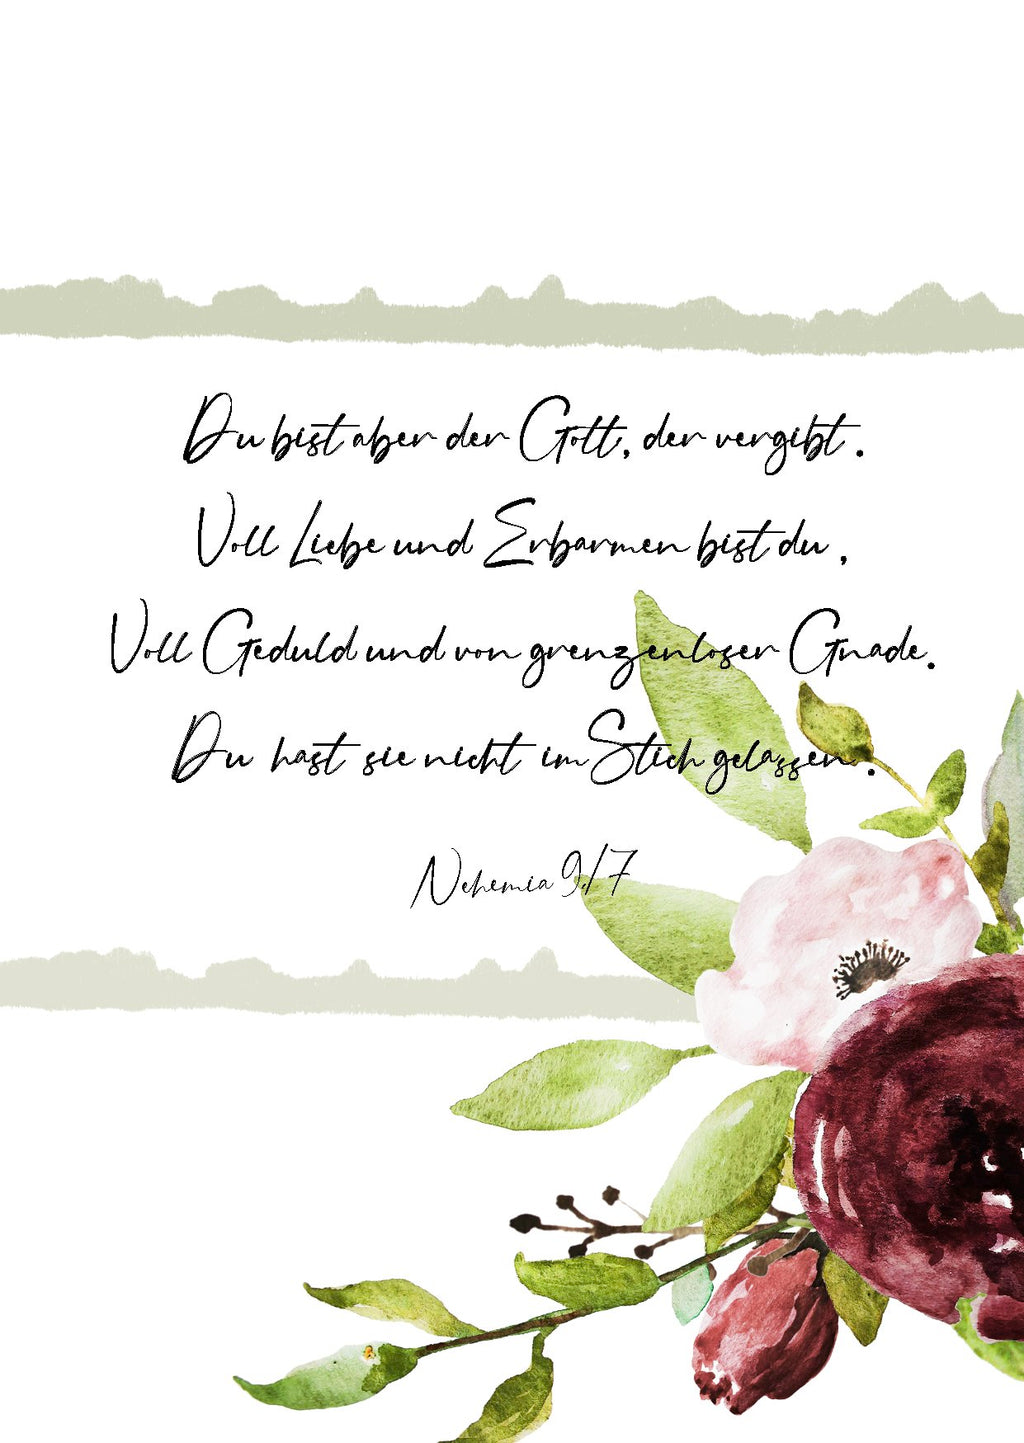 Du bist aber der Gott, der vergibt.
Voll Liebe und Erbarmen bist du,
Voll Geduld und von grenzenloser Gnade.
Du hast sie nicht im Stich gelassen.
Nehemia 9,17